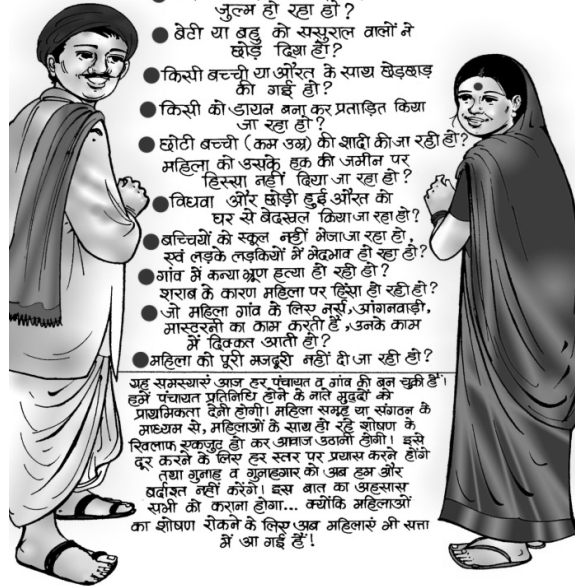 जुल्म हो रहा हो?
बेटी या बहु को ससुराल वालों ने
छोड़ दिया हो?
किसी बच्ची या औरत के साथ छेड़छाड़
की गई हो?
किसी को डायन बना कर प्रताड़ित किया
जा रहा हो?
छोटी बच्ची (कम उम्र) की शादी की जा रही हो?
महिला को उसके हक की जमीन पर
हिस्सा नहीं दिया जा रहा हो?
विधवा और छोड़ी हुई औरत को
घर से बेदखल किया जा रहा हो?
बच्चियों को स्कूल नहीं भेजा जा रहा हो,
एवं लड़के लड़कियों में भेदभाव हो रहा हो?
गांव में कन्या भ्रूण हत्या हो रही हो?
शराब के कारण महिला पर हिंसा हो रही हो?
जो महिला गांव के लिए नर्स, आंगनवाड़ी,
मास्टरनी का काम करती हैं, उनके काम
में दिक्कत आती हो?
महिला को पूरी मजदूरी नहीं दी जा रही हो?
यह समस्याएं आज हर पंचायत व गांव की बन चुकी हैं।
हमें पंचायत प्रतिनिधि होने के नाते मुद्दों को
प्राथमिकता देनी होगी। महिला समूह या संगठन के
माध्यम से, महिलाओं के साथ हो रहे शोषण के
खिलाफ एकजुट हो कर आवाज उठानी होगी। इसे
दूर करने के लिए हर स्तर पर प्रयास करने होंगे
तथा गुनाह व गुनाहगार को अब हम और
बर्दाश्त नहीं करेंगे। इस बात का अहसास
सभी को कराना होगा... क्योंकि महिलाओं
का शोषण रोकने के लिए अब महिलाएं भी सत्ता
में आ गई हैं!